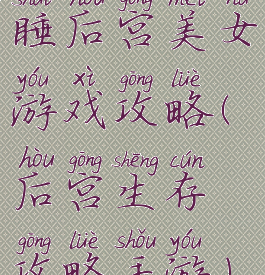 shuì hòu gōng měi nǚ
睡后宫美女
yóu xì gōng lüè
游戏攻略(
hòu gōng shēng cún
后宫生存
gōng lüè shǒu yóu
攻略手游)